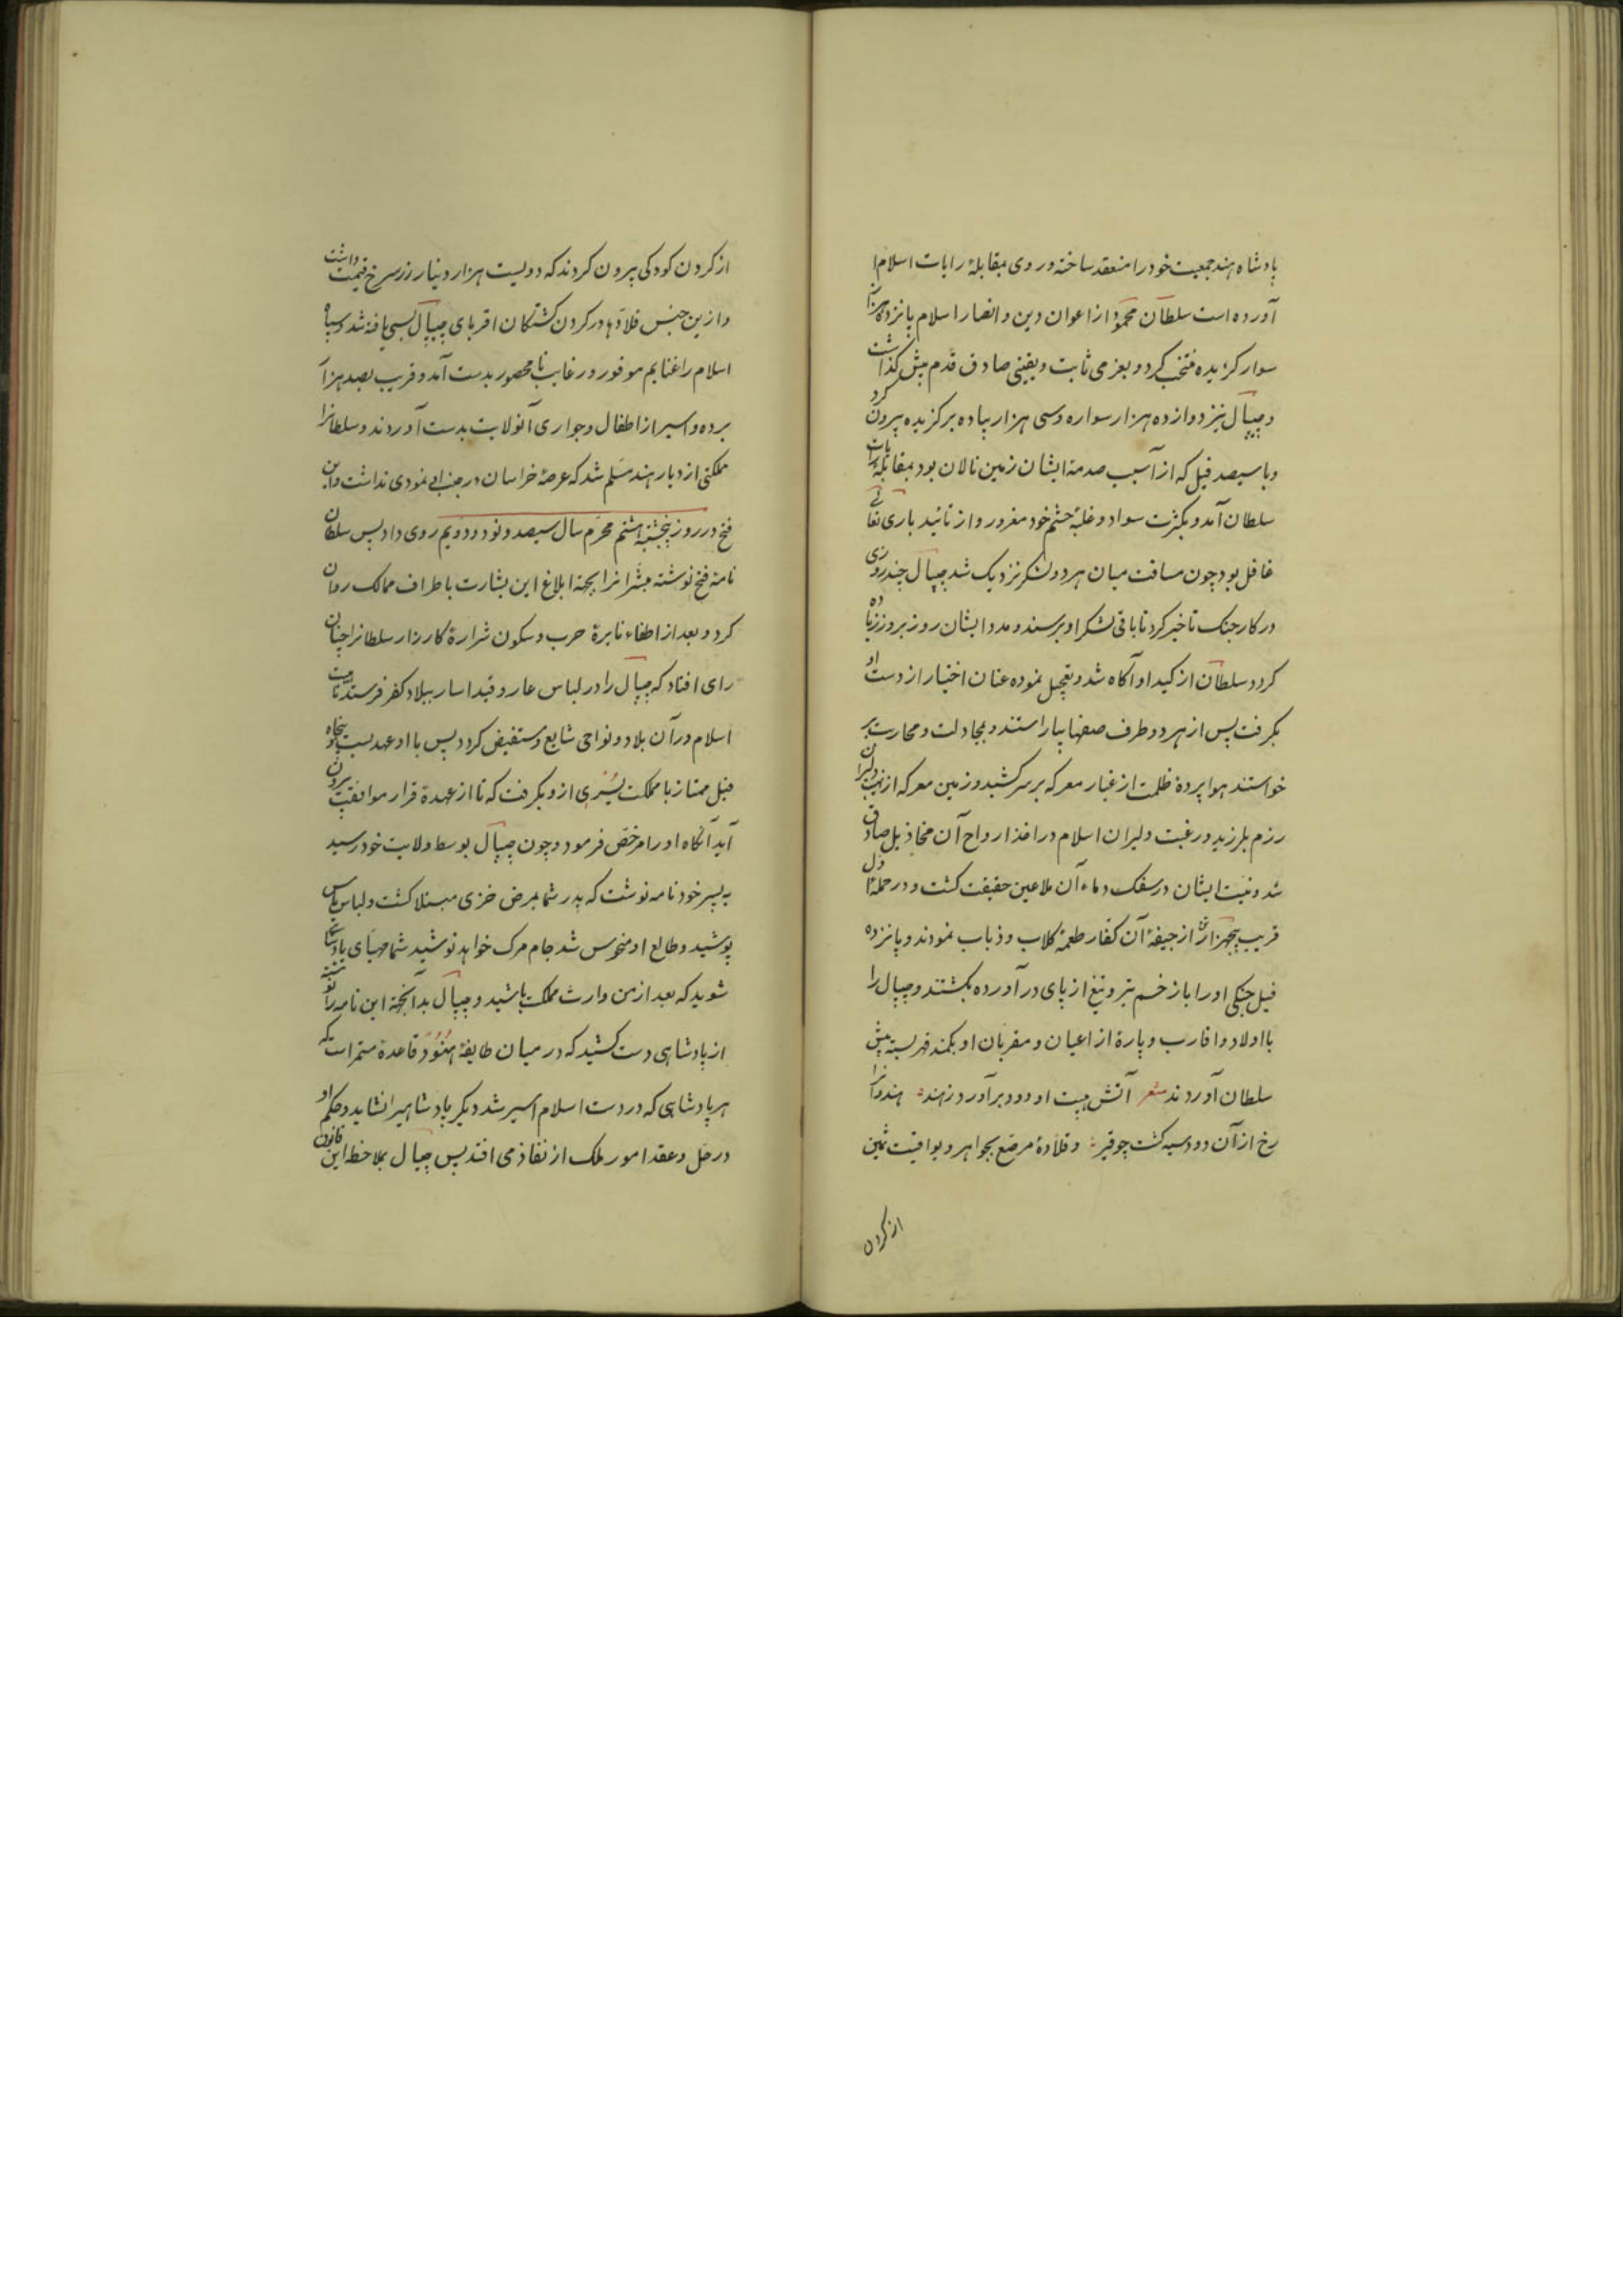 پادشاه هند جمعیت خود را منعقد ساخته و روی بمقابلهٔ رایات اسلام
آورده است سلطان محمود از اعوان دین و انصار اسلام پانزده هزار
سوار کزیده منتخب کرد و بعزمی ثابت و یقینی صادق قدم پیش کذاشت
و جیپال نیز دوازده هزار سواره و سی هزار پیاده برکزیده بیرون کرد
و با سیصد فیل که از آسیب صدمهٔ ایشان زمین نالان بود بمقابلهٔ رایات
سلطان آمد و بکثرت سواد و غلبهٔ حشم خود مغرور و از تائید باری تعالی
غافل بود چون مسافت میان هر دو لشکر نزدیک شد جیپال چند روزی
در کار جنک تاخیر کرد تا باقی لشکر او برسند و مدد ایشان روز بروز زیاده
کردد سلطان از کید او آکاه شد و تعجیل نموده عنان اختیار از دست او
بکرفت پس از هر دو طرف صفها بیاراستند و بمجادلت و محاربت بر
خواستند هوا پردهٔ ظلمت از غبار معرکه بر سر کشید و زمین معرکه از نهیب دلیران
رزم بلرزید و رغبت دلیران اسلام در اخذ ارواح آن مخاذیل صادق
شد و نیت ایشان در سفک دماء آن ملاعین حقیقت کشت و در حملهٔ اول
قریب پنجهزار از جیفهٔ آن کفار طعمهٔ کلاب و ذباب نمودند و پانزده
فیل جنکی او را با زخم تیر و تیغ از پای در آورده بکشتند و جیپال را
با اولاد و اقارب و پارهٔ از اعیان و مقربان او بکمند قهر بسته پیش
سلطان آوردند شعر آتش هیبت او دود برآورد ز هند هندوانرا
رخ از آن دود سیه کشت چو قیر و قلادهٔ مرصع بجواهر و یواقیت ثمین
از کردن
از کردن کودکی بیرون کردند که دویست هزار دینار زر سرخ قیمت داشت
و ازین جنس قلادها در کردن کشتکان اقربای جیپال بسی یافته شد و سپاه
اسلام را غنایم موفور و رغایب نامحصور بدست آمد و قریب بصد هزار
برده و اسیر از اطفال و جواری آنولایت بدست آوردند و سلطانرا
ملکتی از دیار هند مسلم شد که عرصهٔ خراسان در جنب او نمودی نداشت و این
فتح در روز پنجشنبه هشتم محرم سال سیصد و نود و دویم روی داد پس سلطان
نامهٔ فتح نوشته مبشرانرا بجهة ابلاغ این بشارت باطراف ممالک روان
کرد و بعد از اطفاء نایرهٔ حرب و سکون شرارهٔ کارزار سلطانرا چنان
رای افتاد که جیپال را در لباس عار و قید اسار ببلاد کفر فرستد تا هیبت
اسلام در آن بلاد و نواحی شایع و مستفیض کردد پس با او عهد بست و پنجاه
فیل ممتاز با مملکت پسری ازو بکرفت که تا از عهدهٔ قرار موافقت بیرون
آید آنکاه او را مرخص فرمود و چون جیپال بوسط ولایت خود رسید
به پسر خود نامه نوشت که پدر شما بمرض خزی مبتلا کشت و لباس یاس
پوشید و طالع او منحوس شد جام مرک خواهد نوشید شما مهیای پادشاهی
شوید که بعد از من وارث مملکت باشید و جیپال بدآنجهة این نامه را نوشته
از پادشاهی دست کشید که در میان طایفهٔ هنود قاعدهٔ مستمر است که
هر پادشاهی که در دست اسلام اسیر شد دیکر پادشاهیرا نشاید و حکم او
در حل و عقد امور ملک از نفاذ می افتد پس جیپال بملاحظه این قانون